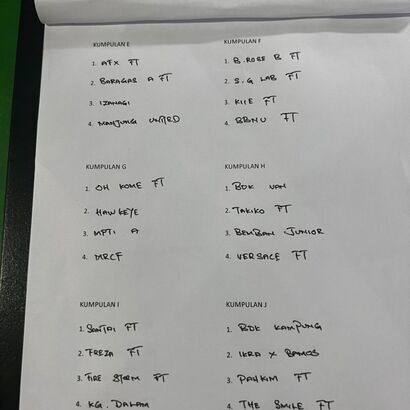 KUMPULAN E
1. AFX FT
2. BARAGAS A FT
3. IZANAGI
4. MANJUNG UNITED
KUMPULAN F
1. B.ROSE B FT
2. S.G LAB FT
3. KIIE FT
4. BBNU FT
KUMPULAN G
1. OH KOME FT
2. HAWKEYE
3. MPTI A
4. MRCF
KUMPULAN H
1. BDK VAN
2. TAKIKO FT
3. BEMBAN JUNIOR
4. VERSACE FT
KUMPULAN I
1. SANTAI FT
2. FREZA FT
3. FIRE STORM FT
4. KG. DALAM
KUMPULAN J
1. BDK KAMPUNG
2. IKRA X BAMOS
3. PAHKIM FT
4. THE SMILE FT